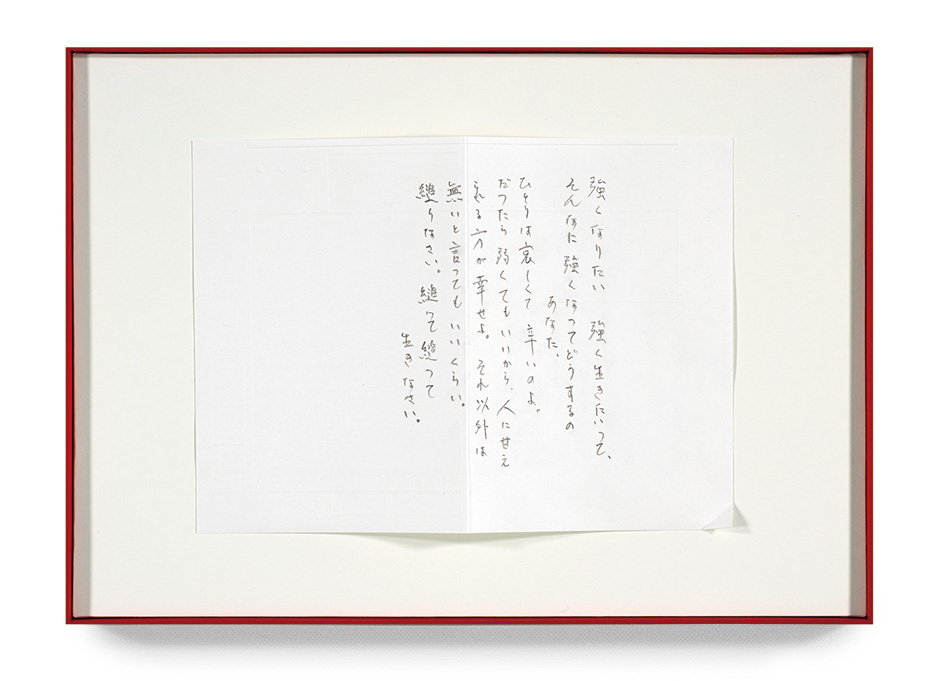 強くなりたい　強く生きたいって、
そんなに強くなってどうするの
あなた、
ひとりは哀しくて　辛いのよ。
だったら弱くてもいいから、人に甘え
られる方が幸せよ。それ以外は
無いと言ってもいいくらい。
縋りなさい。縋って縋って
生きなさい。